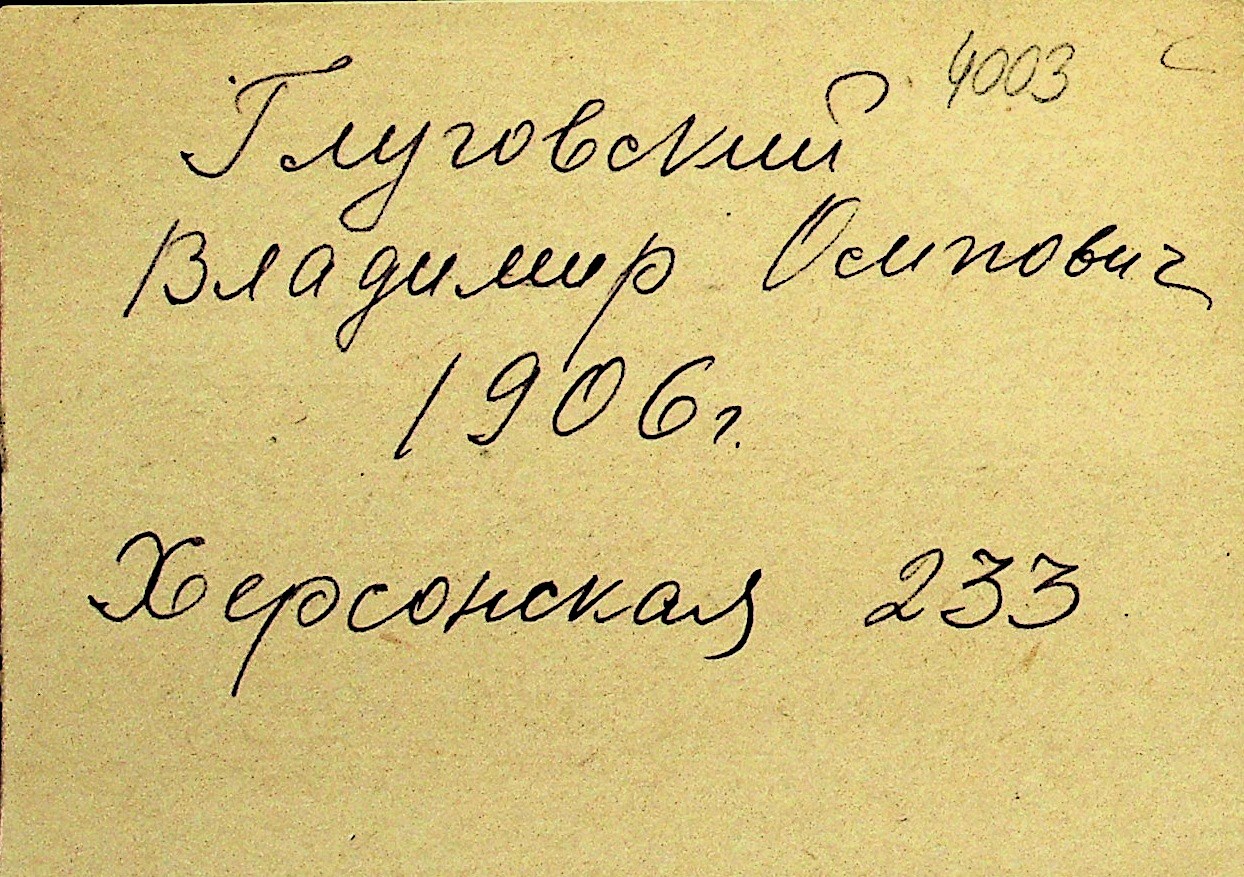 4003
Глуговский
Владимир Осипович
1906 г.
Херсонская 233